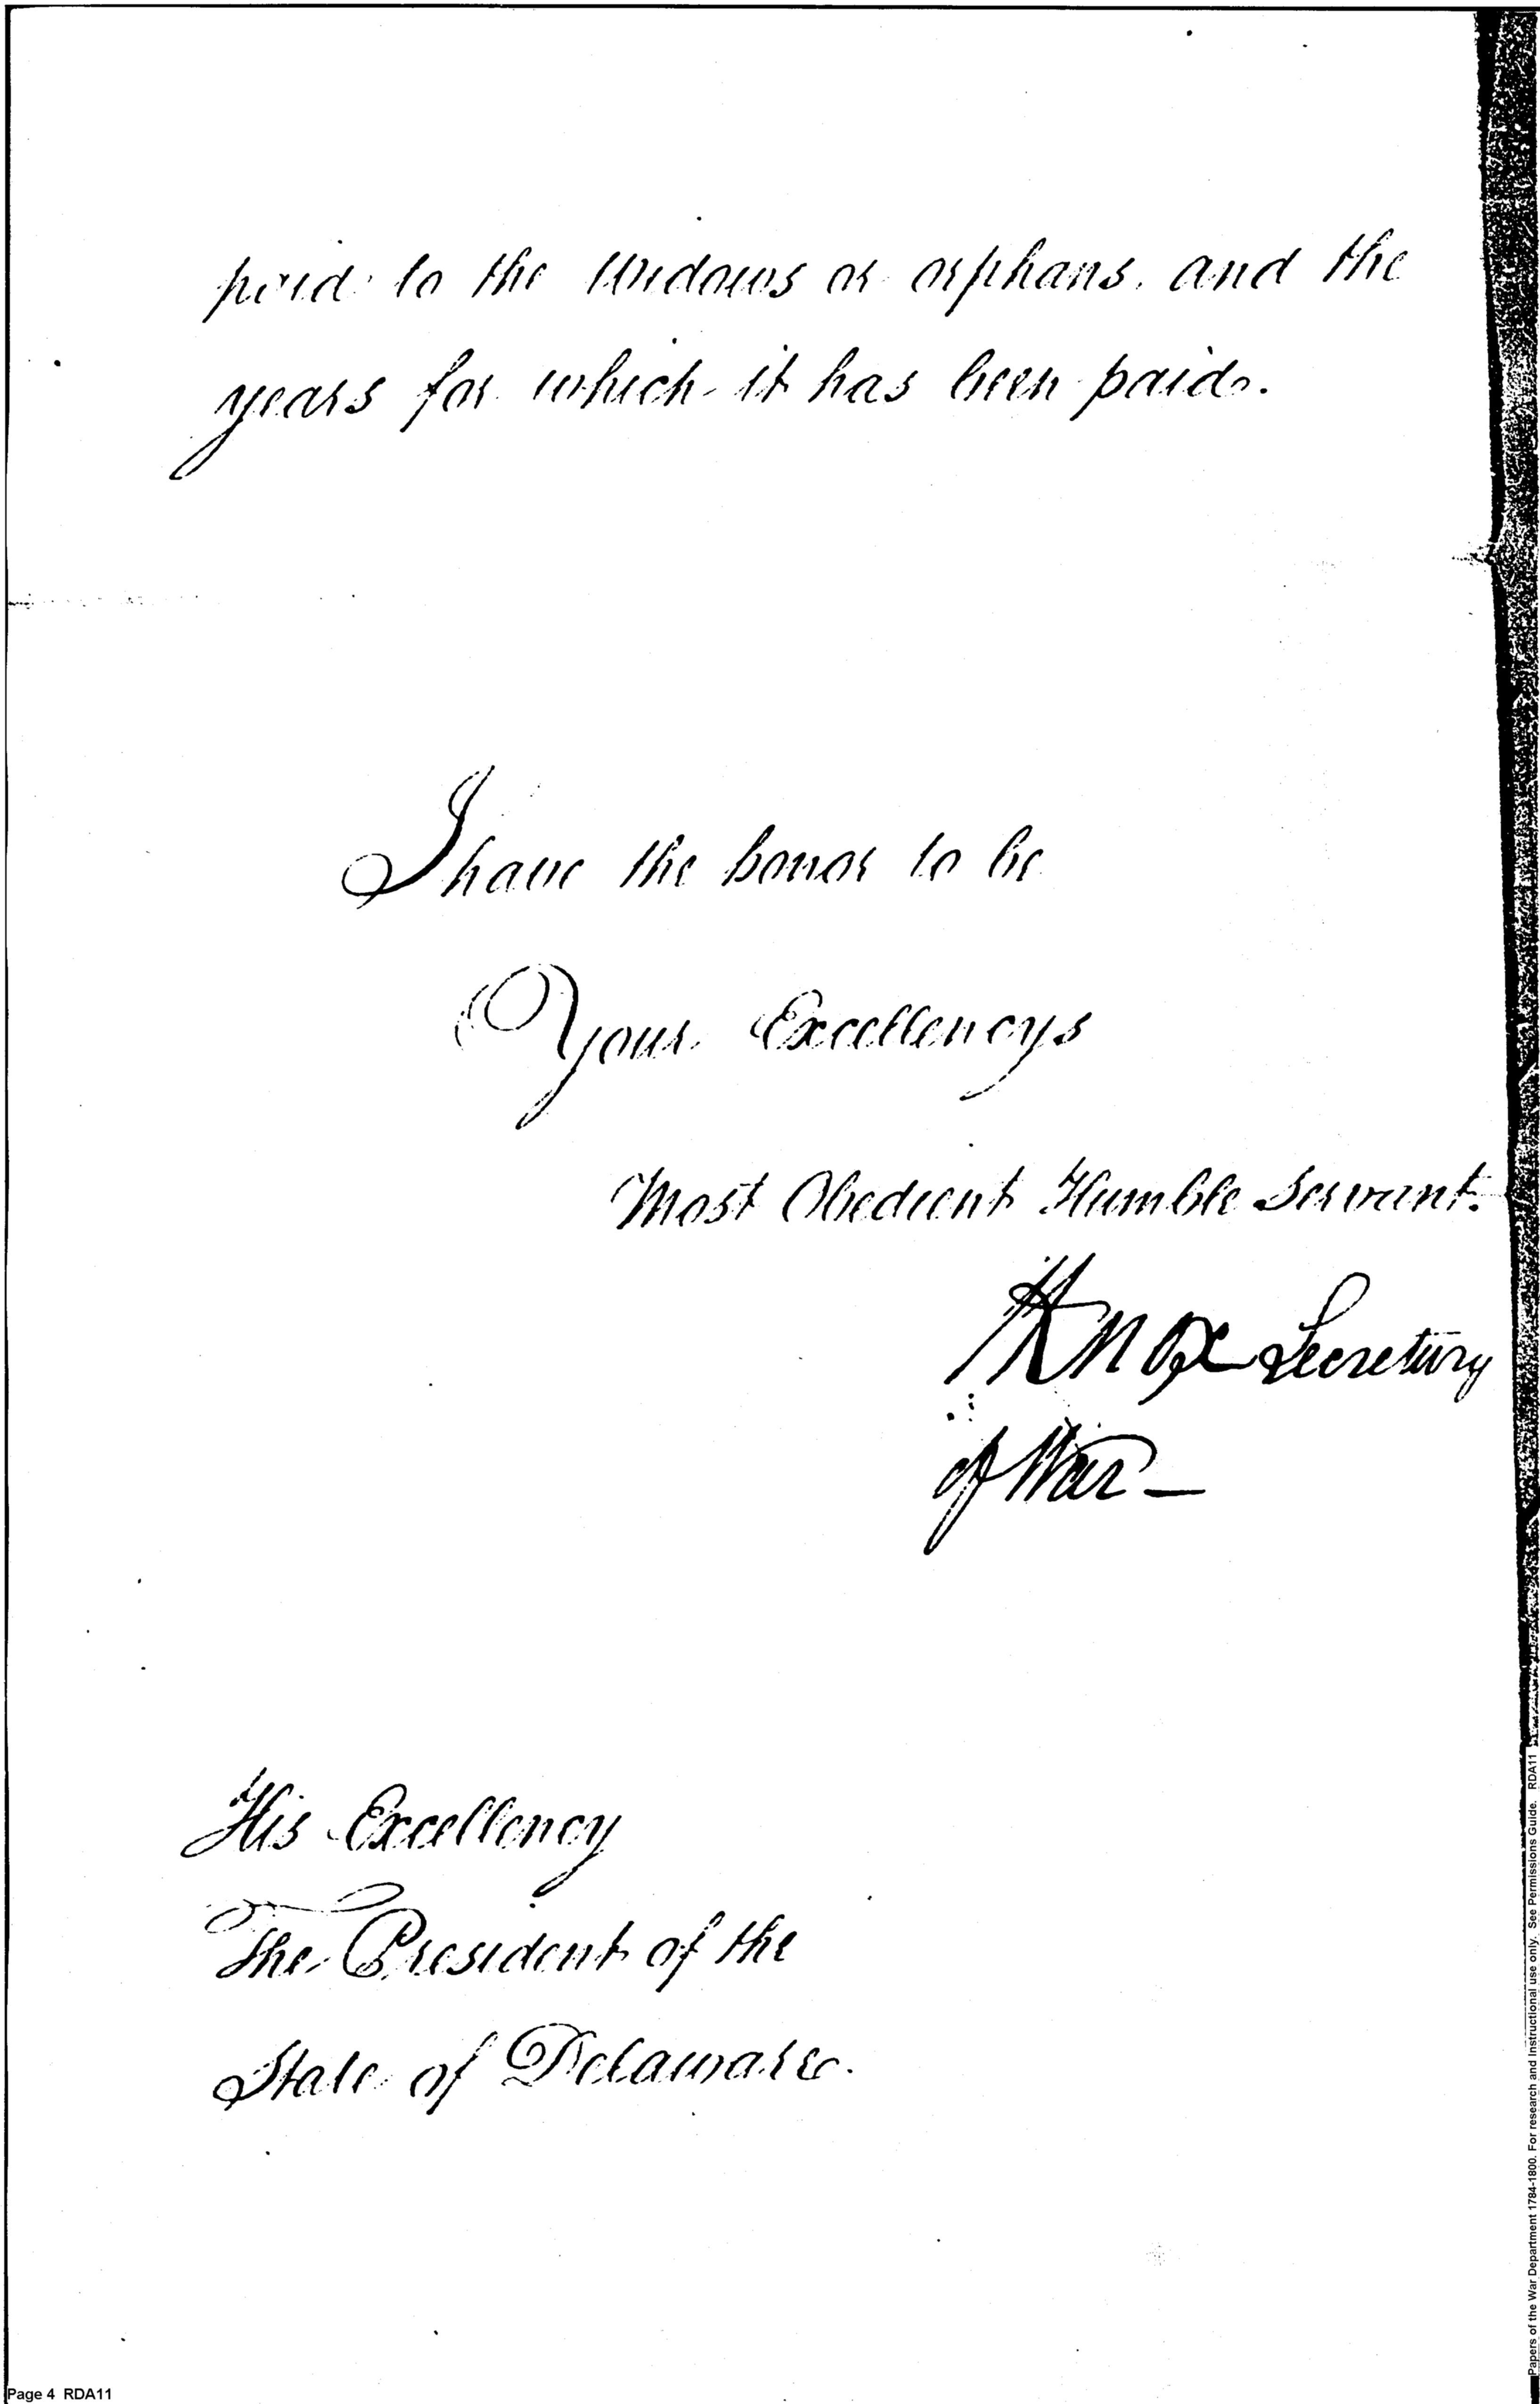 paid to the Widows or orphans, and the
years for which it has been paid.
I have the honor to be
Your Excellencys
Most Obedient Humble Servant.
HKnox Secretary
of War —
His Excellency
The President of the
State of Delaware.
Page 4 RDA11
Papers of the War Department 1784-1800. For research and Instructional use only. See Permissions Guide. RDA11